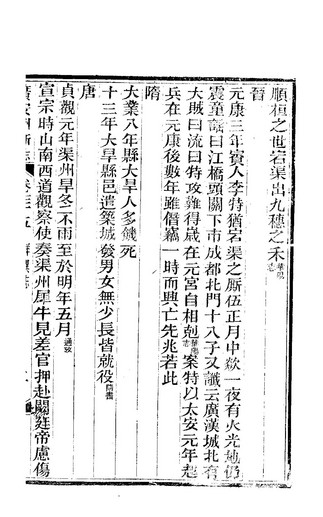 順桓之世宕渠出九穗之禾華陽志
晉
元康三年賨人李特猶宕渠之厮伍正月中欻一夜有火光地仍
震童謠曰江橋頭闕下市成都北門十八子又讖云廣漢城北有
大賊曰流曰特攻難得歲在元宮自相剋華陽志案特以太安元年起
兵在元康後數年雖僭竊一時而興亡先兆若此
隋
大業八年縣大旱人多饑死
十三年大旱縣邑遣築城發男女無少長皆就役隋書
唐
貞觀元年渠州旱冬不雨至於明年五月通攷
宣宗時山南西道觀察使奏渠州犀牛見差官押赴闕廷帝慮傷
廣安州新志 卷三十五 祥異志